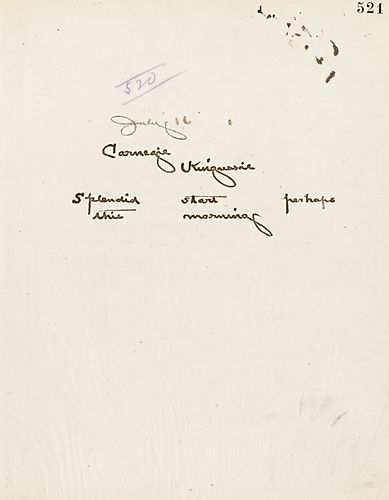 521
520
July 16
Carnegie
Kingussie
Splendid start perhaps
this morning